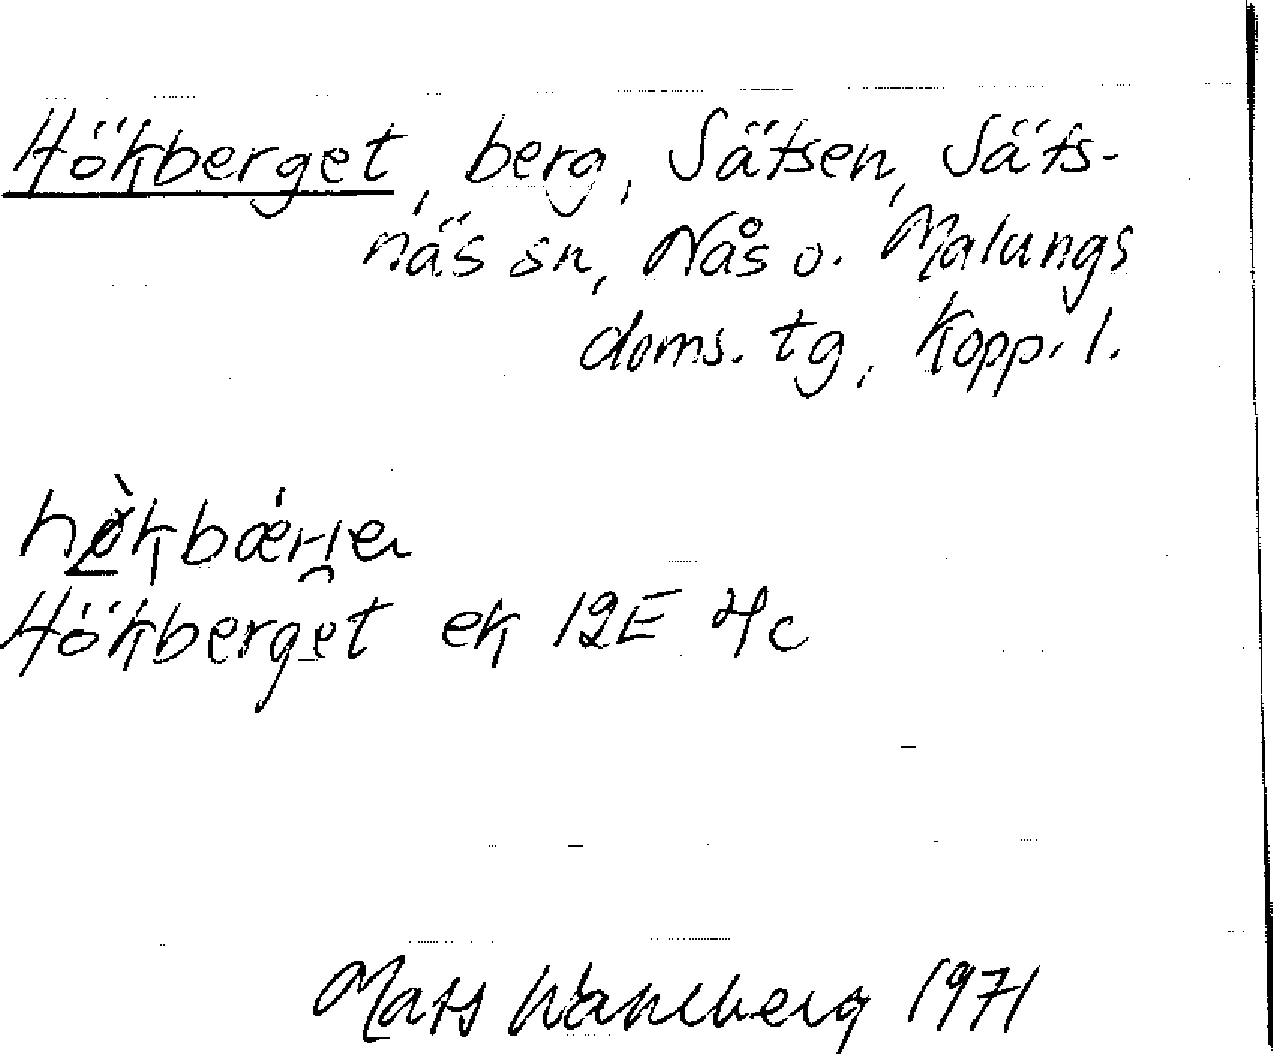 Hökberget, berg, Sätsen, Säts-
näs sn, Nås o. Malungs
doms. tg, Kopp. l.
Hökberget ek 12E 4c
Mats Wahlberg 1971